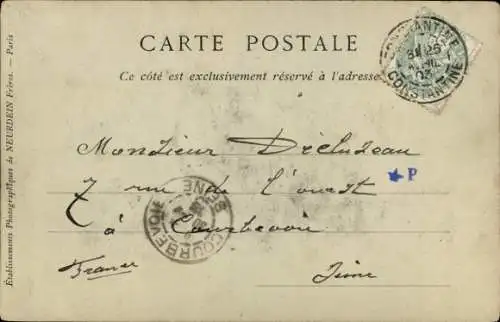 CARTE POSTALE
Ce côté est exclusivement réservé à l'adresse
CONSTANTINE
CONSTANTINE
Monsieur Décludeau
7 rue de l'ouest
à Courbevoie
Seine
France
★P
COURBEVOIE
SEINE
Établissements Photographiques de NEURDEIN Frères. — Paris